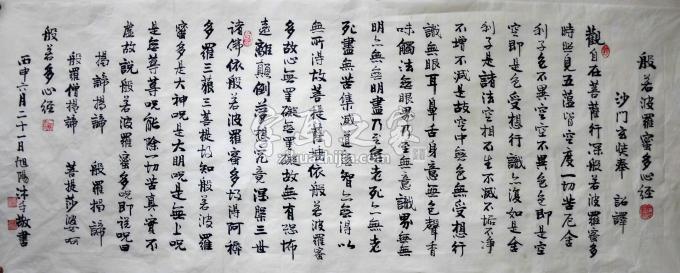 般若波羅蜜多心經
沙門玄奘奉 詔譯
觀自在菩薩行深般若波羅蜜多
時照見五蘊皆空度一切苦厄舍
利子色不異空空不異色色即是空
空即是色受想行識亦復如是舍
利子是諸法空相不生不滅不垢不淨
不增不減是故空中無色無受想行
識無眼耳鼻舌身意無色聲香
味觸法無眼界乃至無意識界無無
明亦無無明盡乃至無老死亦無老
死盡無苦集滅道無智亦無得以
無所得故菩提薩埵依般若波羅蜜
多故心無罣礙無罣礙故無有恐怖
遠離顛倒夢想究竟涅槃三世
諸佛依般若波羅蜜多故得阿耨
多羅三藐三菩提故知般若波羅
蜜多是大神呪是大明呪是無上呪
是無等等呪能除一切苦真實不
虛故說般若波羅蜜多呪即說呪曰
揭諦揭諦 般羅揭諦
般羅僧揭諦 菩提莎婆呵
般若多心經
丙申六月二十一日旭陽沐手敬書